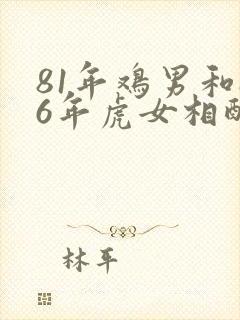 81年鸡男和
6年虎女相配
林平